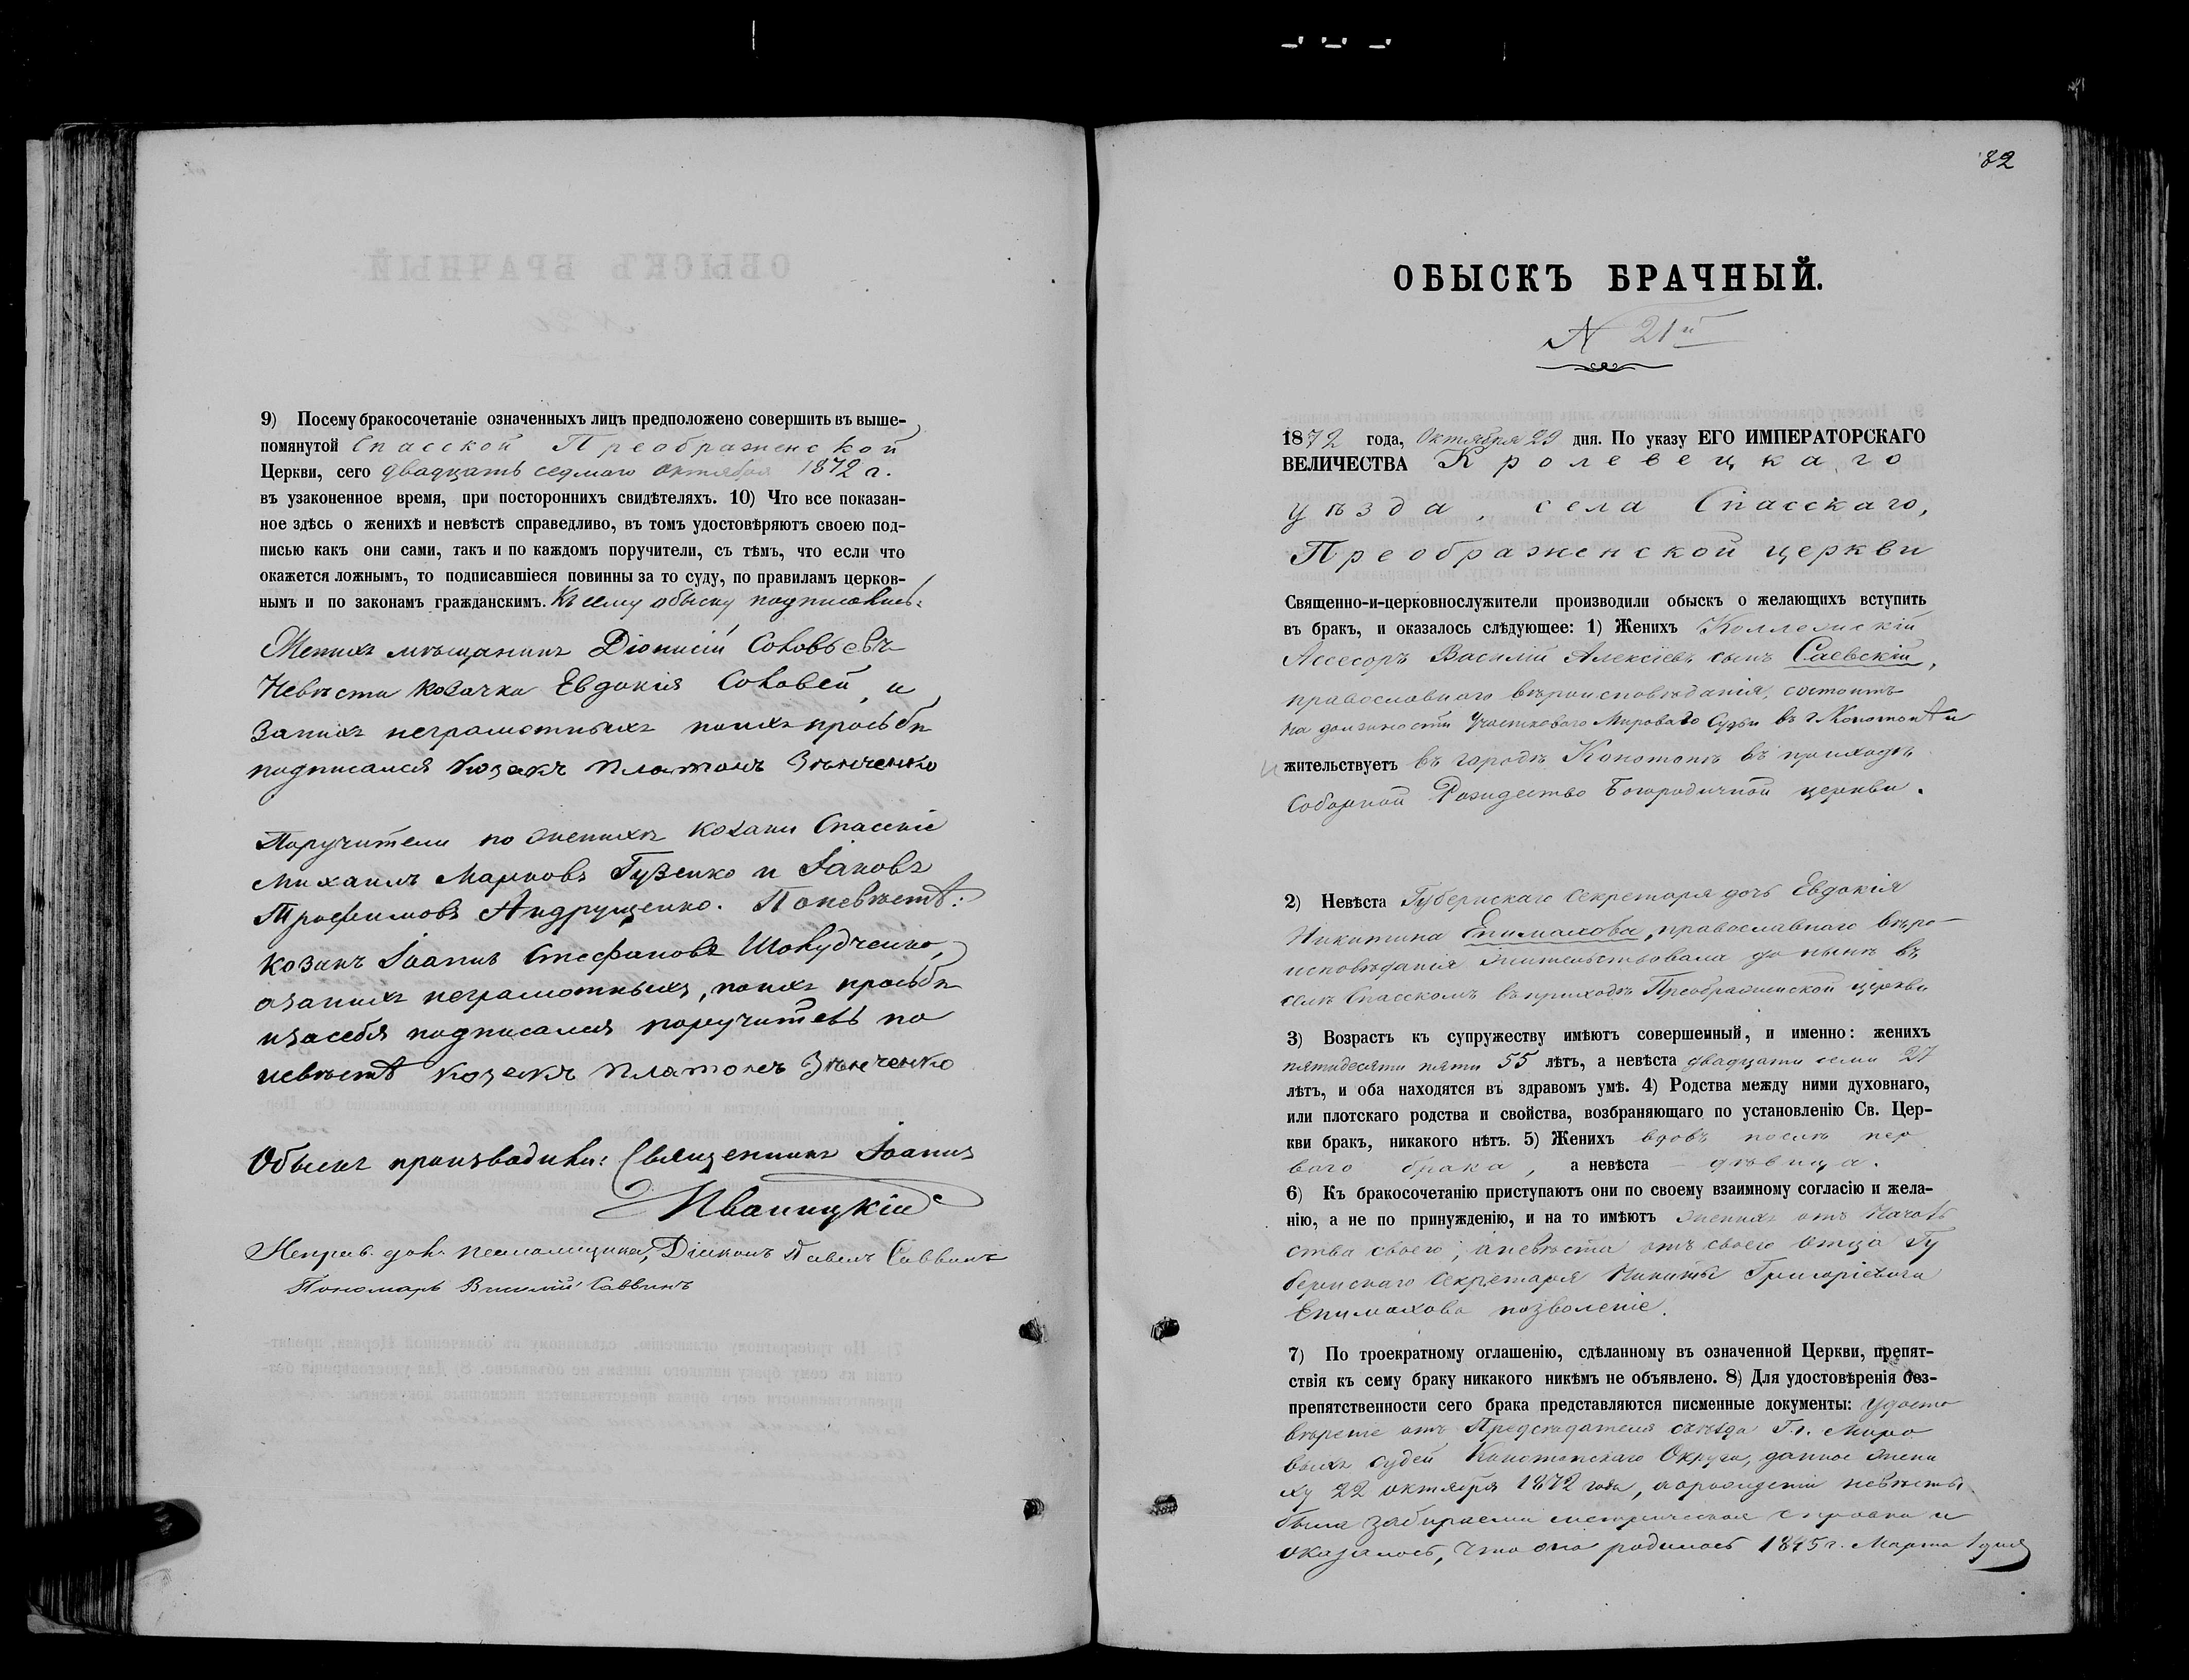 9) Посему бракосочетаніе означенныхъ лицъ предположено совершить въ выше-
помянутой Спасской Преображенской
Церкви, сего двадцать седмаго октября 1872 г.
въ узаконенное время, при постороннихъ свидѣтеляхъ. 10) Что все показан-
ное здѣсь о женихѣ и невѣстѣ справедливо, въ томъ удостовѣряютъ своею под-
писью какъ они сами, такъ и по каждомъ поручители, съ тѣмъ, что если что
окажется ложнымъ, то подписавшіеся повинны за то суду, по правиламъ церков-
нымъ и по законамъ гражданскимъ. Къ сему обыску подписались:
Женихъ мѣщанинъ Діонисій Соловьевъ
Невѣста козачка Евдокія Соловей, и
за нихъ неграмотныхъ по ихъ прозьбѣ
подписался козакъ Платонъ Зѣнченко
Поручители по женихѣ козаки Спасскіе
Михаилъ Марковъ Гузенко и Іаковъ
Трофимовъ Андрущенко. По невѣстѣ:
козакъ Іоаннъ Стефановъ Шолудченко,
а за нихъ неграмотныхъ, по ихъ прозьбѣ
и за себя подписался поручитель по
невѣстѣ козакъ Платонъ Зѣнченко
Обыскъ производили: Священникъ Іоаннъ
Иваницкій
Исправ. дол. псаломщика, Діаконъ Павелъ Саввинъ
Пономарь Василій Саввинъ
82
ОБЫСКЪ БРАЧНЫЙ.
N 21й
1872 года, Октября 29 дня. По указу ЕГО ИМПЕРАТОРСКАГО
ВЕЛИЧЕСТВА Кролевецкаго
уѣзда, села Спасскаго,
Преображенской церкви
Священно-и-церковнослужители производили обыскъ о желающихъ вступить
въ бракъ, и оказалось слѣдующее: 1) Женихъ Коллежскій
Ассесоръ Василій Алексіевъ сынъ Саевскій,
православнаго вѣроисповѣданія, состоитъ
на должности Участковаго Мироваго Судьи въ г. Конотопѣ и
жительствуетъ въ городѣ Конотопѣ въ приходѣ
Соборной Рождество Богородичной церкви.
2) Невѣста Губернскаго Секретаря дочь Евдокія
Никитина Епимахова, православнаго вѣро-
исповѣданія жительствовала до нынѣ въ
селѣ Спасскомъ въ приходѣ Преображенской церкви
3) Возрастъ къ супружеству имѣютъ совершенный, и именно: женихъ
пятидесяти пяти 55 лѣтъ, а невѣста двадцати семи 27
лѣтъ, и оба находятся въ здравомъ умѣ. 4) Родства между ними духовнаго,
или плотскаго родства и свойства, возбраняющаго по установленію Св. Цер-
кви бракъ, никакого нѣтъ. 5) Женихъ вдовъ послѣ пер
ваго брака, а невѣста – дѣвица.
6) Къ бракосочетанію приступаютъ они по своему взаимному согласію и жела-
нію, а не по принужденію, и на то имѣютъ женихъ отъ Началь
ства своего, а невѣста отъ своего отца Гу
бернскаго Секретаря Никиты Григоріевича
Епимахова позволеніе.
7) По троекратному оглашенію, сдѣланному въ означенной Церкви, препят-
ствія къ сему браку никакого никѣмъ не объявлено. 8) Для удостовѣренія без-
препятственности сего брака представляются писменные документы: Удосто
вѣреніе отъ Предсѣдателя съѣзда Г.г. Миро
выхъ судей Конотопскаго Округа, данное жени
ху 22 октября 1872 года, а о рожденіи невѣсты
была забираема метрическая справка и
оказалось, что она родилась 1845 г. Марта 1 дня